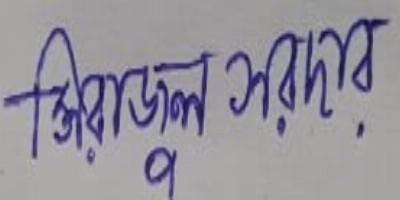 সিরাজুল সরদার